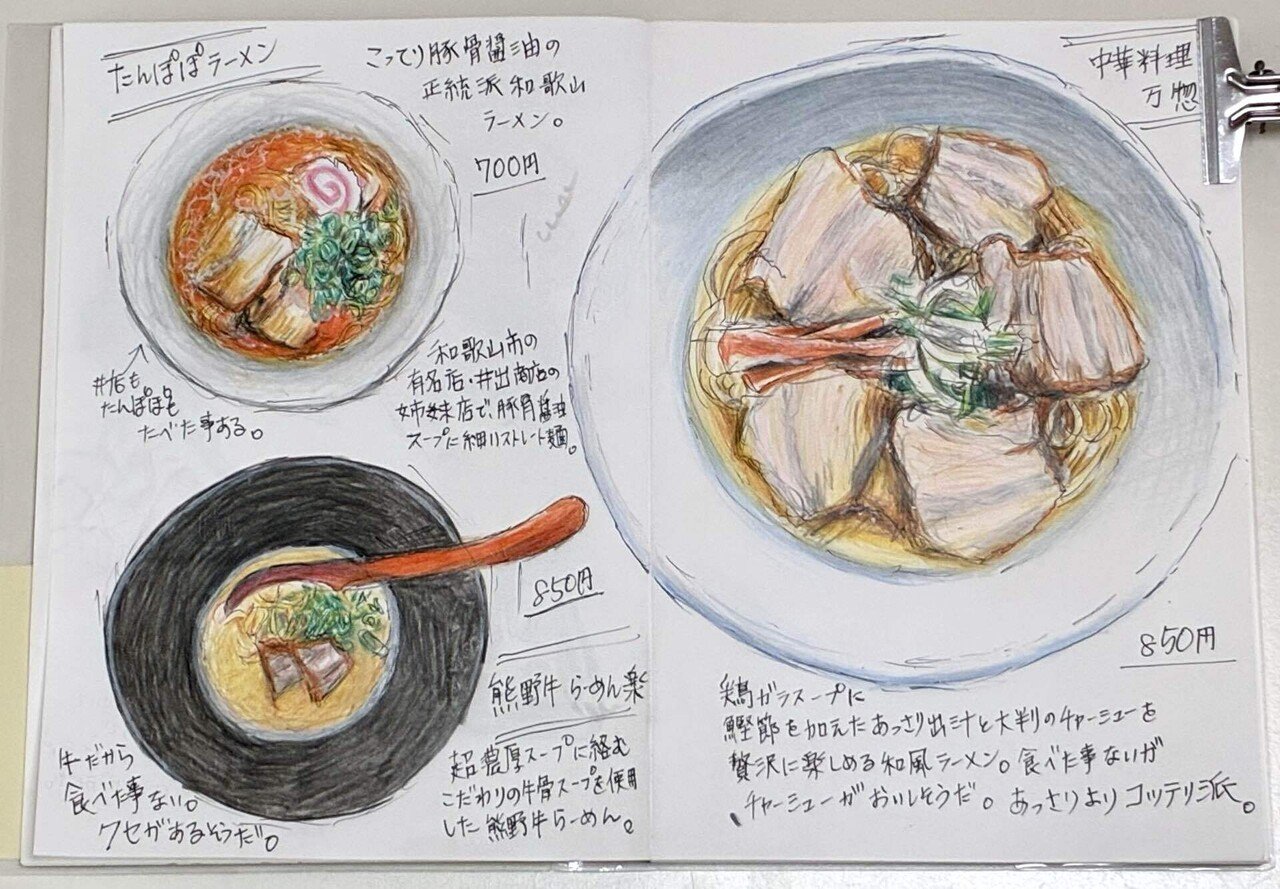 たんぽぽラーメン
こってり豚骨醤油の
正統派和歌山
ラーメン。
700円
和歌山市の
有名店・井出商店の
姉妹店で、豚骨醤油
スープに細いストレート麺。
井店も
たんぽぽも
たべた事ある。
850円
熊野牛らーめん楽
超濃厚スープに絡む
こだわりの牛骨スープを使用
した熊野牛らーめん。
牛だから
食べた事ない。
クセがあるそうだ。
中華料理
万惣
850円
鶏ガラスープに
鰹節を加えたあっさり出汁と大判のチャーシューを
贅沢に楽しめる和風ラーメン。食べた事ないが
チャーシューがおいしそうだ。あっさりよりコッテリ派。